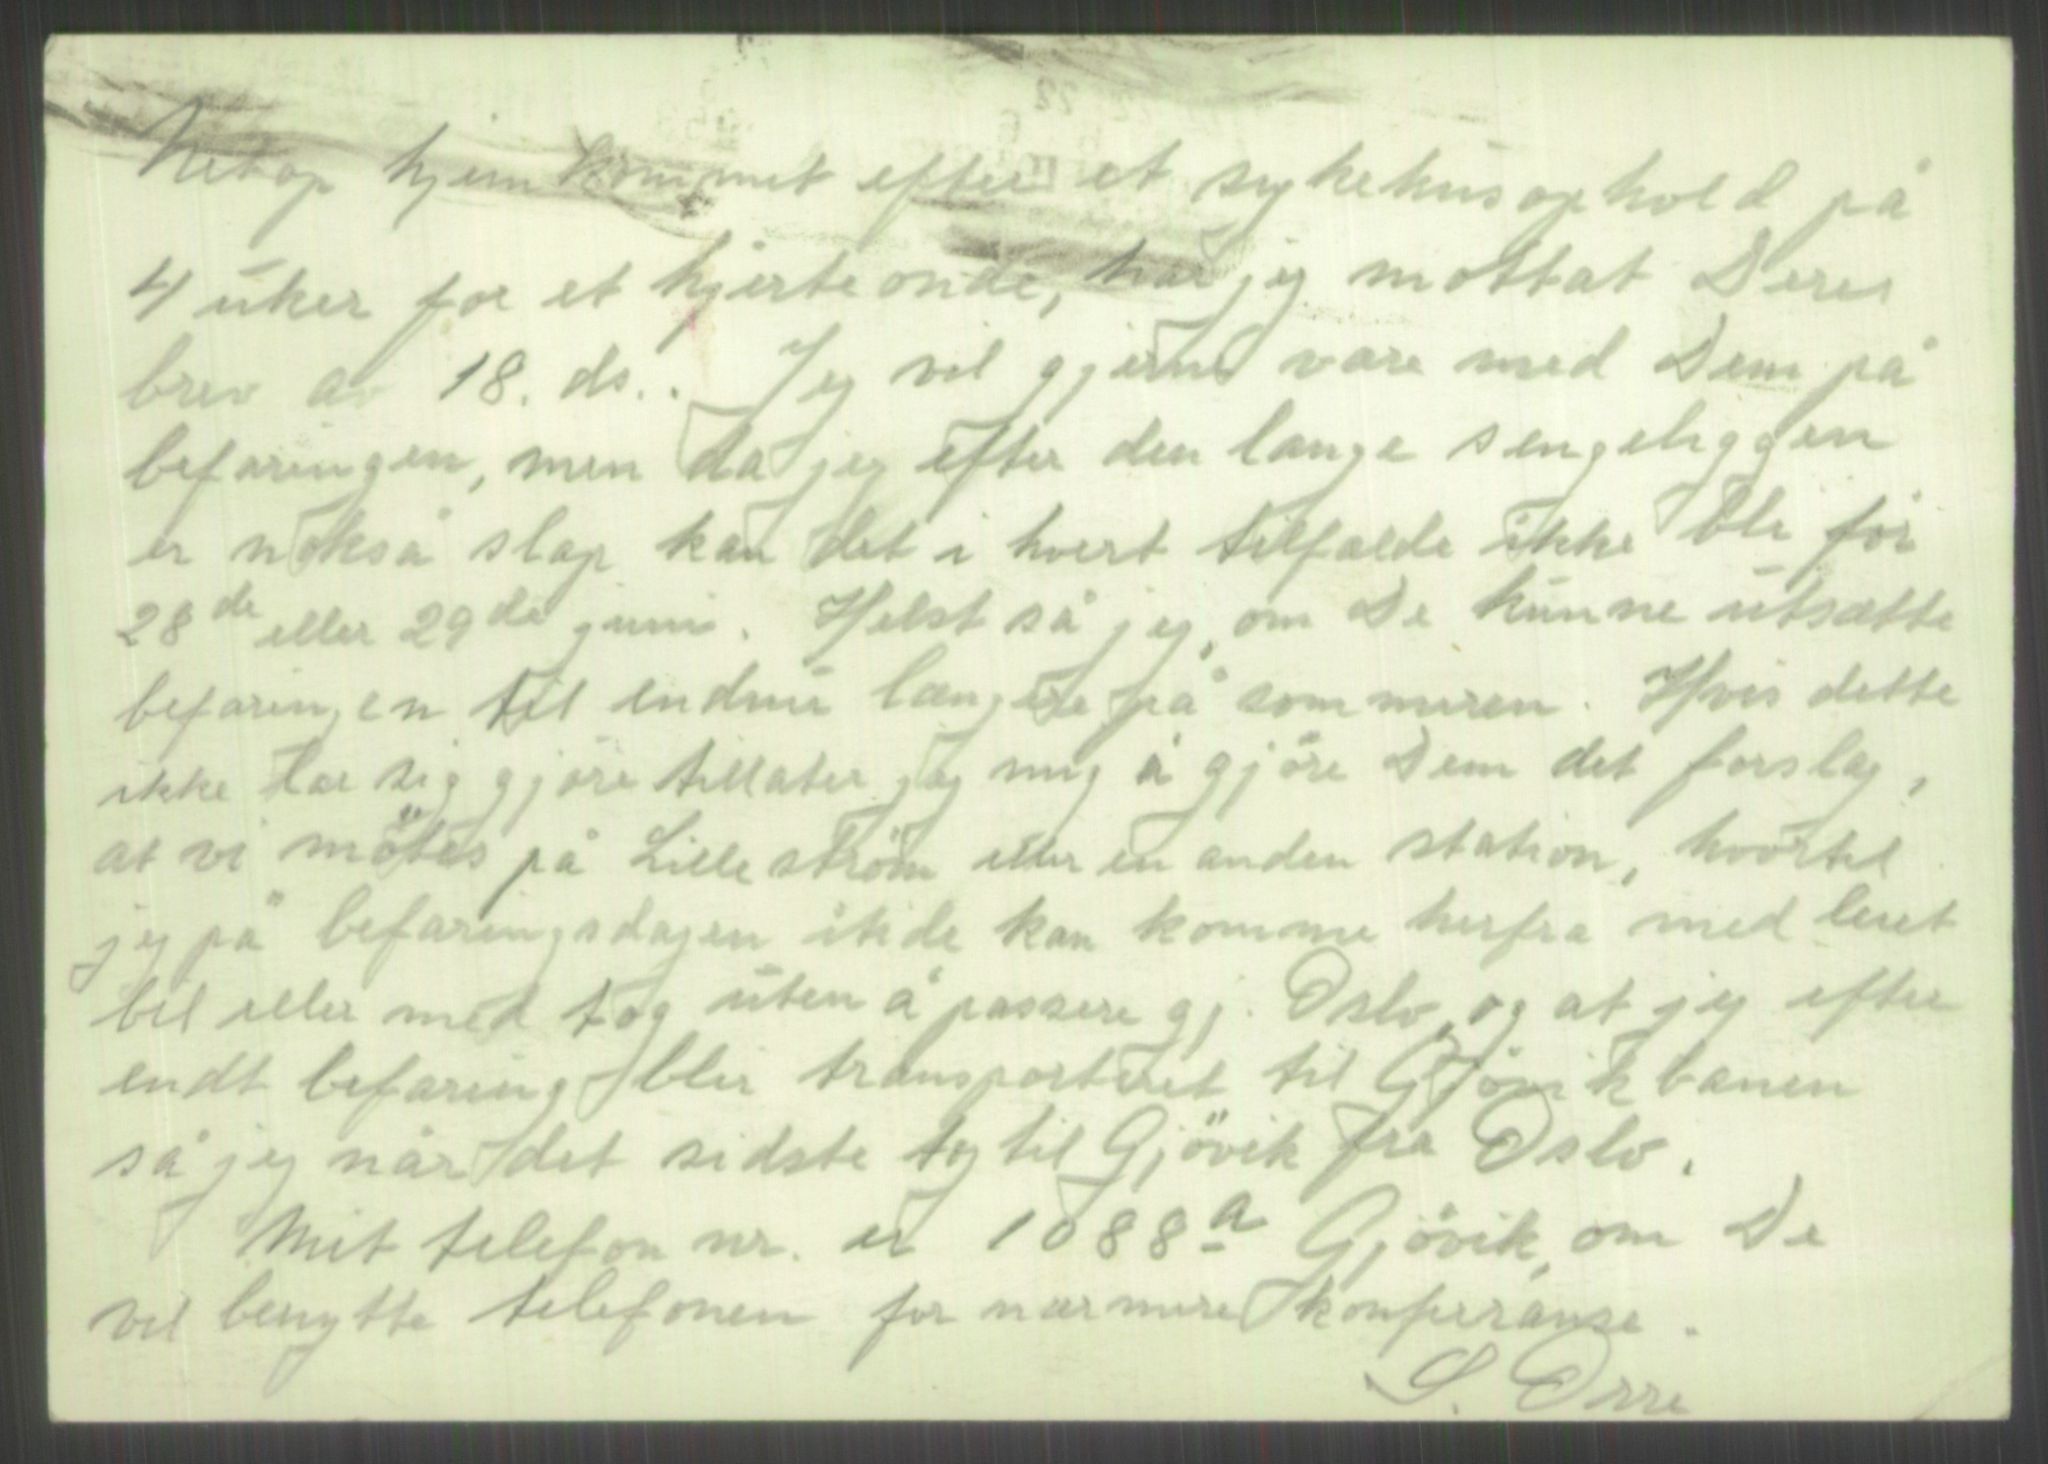 Netop hjemkommet efter et sykehusophold på
4 uker for et hjerteonde, har jeg mottat Deres
brev av 18. ds.. Jeg vil gjerne være med Dem på
befaringen, men da jeg efter den lange sengeliggen
er nokså slap kan det i hvert tilfælde ikke bli før
28de eller 29de juni. Helst så jeg, om De kunne utsætte
befaringen til endnu længere på sommeren. Hvis dette
ikke lar sig gjøre tillater jeg mig å gjöre Dem det forslag,
at vi mötes på Lilleström eller en anden station, hvortil
jeg på befaringsdagen itide kan komme herfra med leiet
bil eller med tog uten å passere gj. Oslo, og at jeg efter
endt befaring blir transporteret til Gjövikbanen
så jeg når det sidste tog til Gjövik fra Oslo.
Mit telefon nr. er 1088a Gjövik, om De
vil benytte telefonen for nærmere konferanse.
S. Orre